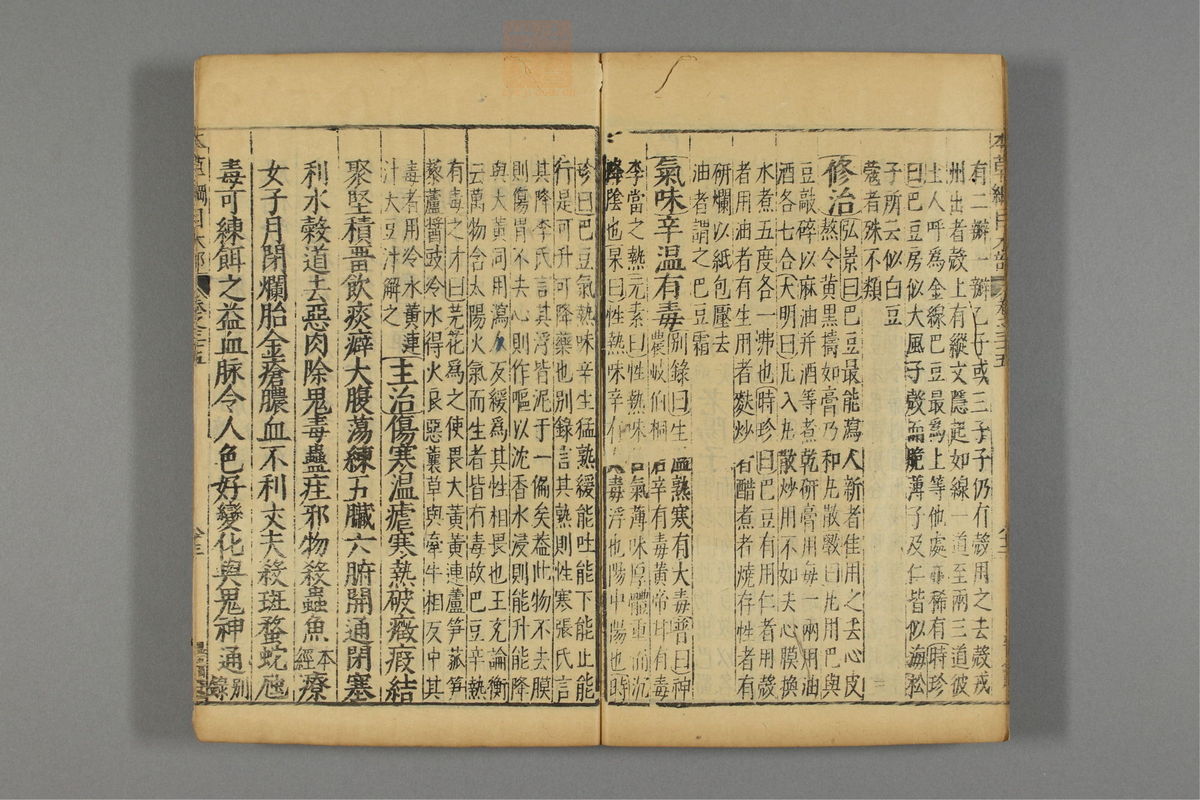 有二瓣一瓣乙子或三子子仍有殼用之去殼戎
州出者殼上有縱文隱起如線一道至兩三道彼
土人呼爲金線巴豆最爲上等他處亦稀有時珍
曰巴豆房似大風子殼而脆薄子及仁皆似海松
子所云似白豆
蔻者殊不類
修治弘景曰巴豆最能瀉人新者佳用之去心皮
熬令黄黑擣如膏乃和丸散斆曰凡用巴與
豆敲碎以麻油并酒等煮乾研膏用每一兩用油
酒各七合大明曰凡入丸散炒用不如去心膜換
水煮五度各一沸也時珍曰巴豆有用仁者用殼
者用油者有生用者麩炒者醋煮者燒存性者有
研爛以紙包壓去
油者謂之巴豆霜
氣味辛温有毒别錄曰生温熟寒有大毒普曰神
農岐伯桐君辛有毒黄帝甘有毒
李當之熱元素曰性熱味苦氣薄味厚體重而沉
降陰也杲曰性熱味辛有大毒浮也陽中陽也時
珍曰巴豆氣熱味辛生猛熟緩能吐能下能止能
行是可升可降藥也别錄言其熟則性寒張氏言
其降李氏言其浮皆泥于一偏矣葢此物不去膜
則傷胃不去心則作嘔以沈香水浸則能升能降
與大黄同用瀉人反緩爲其性相畏也王充論衡
云萬物含太陽火氣而生者皆有毒故巴豆辛熱
有毒之才曰芫花爲之使畏大黄黄連蘆笋菰笋
藜蘆醤豉冷水得火良惡蘘草與牽牛相反中其
毒者用冷水黄連
汁大豆汁解之
主治傷寒温瘧寒熱破癥瘕結
聚堅積畱飲痰癖大腹蕩練五臟六腑開通閉塞
利水穀道去惡肉除鬼毒蠱疰邪物殺蟲魚本經療
女子月閉爛胎金瘡膿血不利丈夫殺斑蝥蛇虺
毒可練餌之益血脉令人色好變化與鬼神通别錄
本草綱目木部
卷之三十五
本草綱目木部
卷之三十五